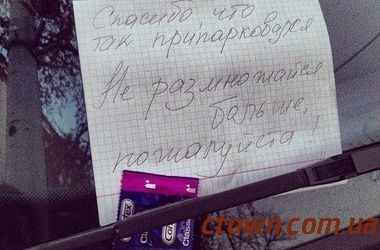 Спасибо, что
так припарковался
Не размножайся
больше,
пожалуйста!
Contex
Classic
ctown.com.ua